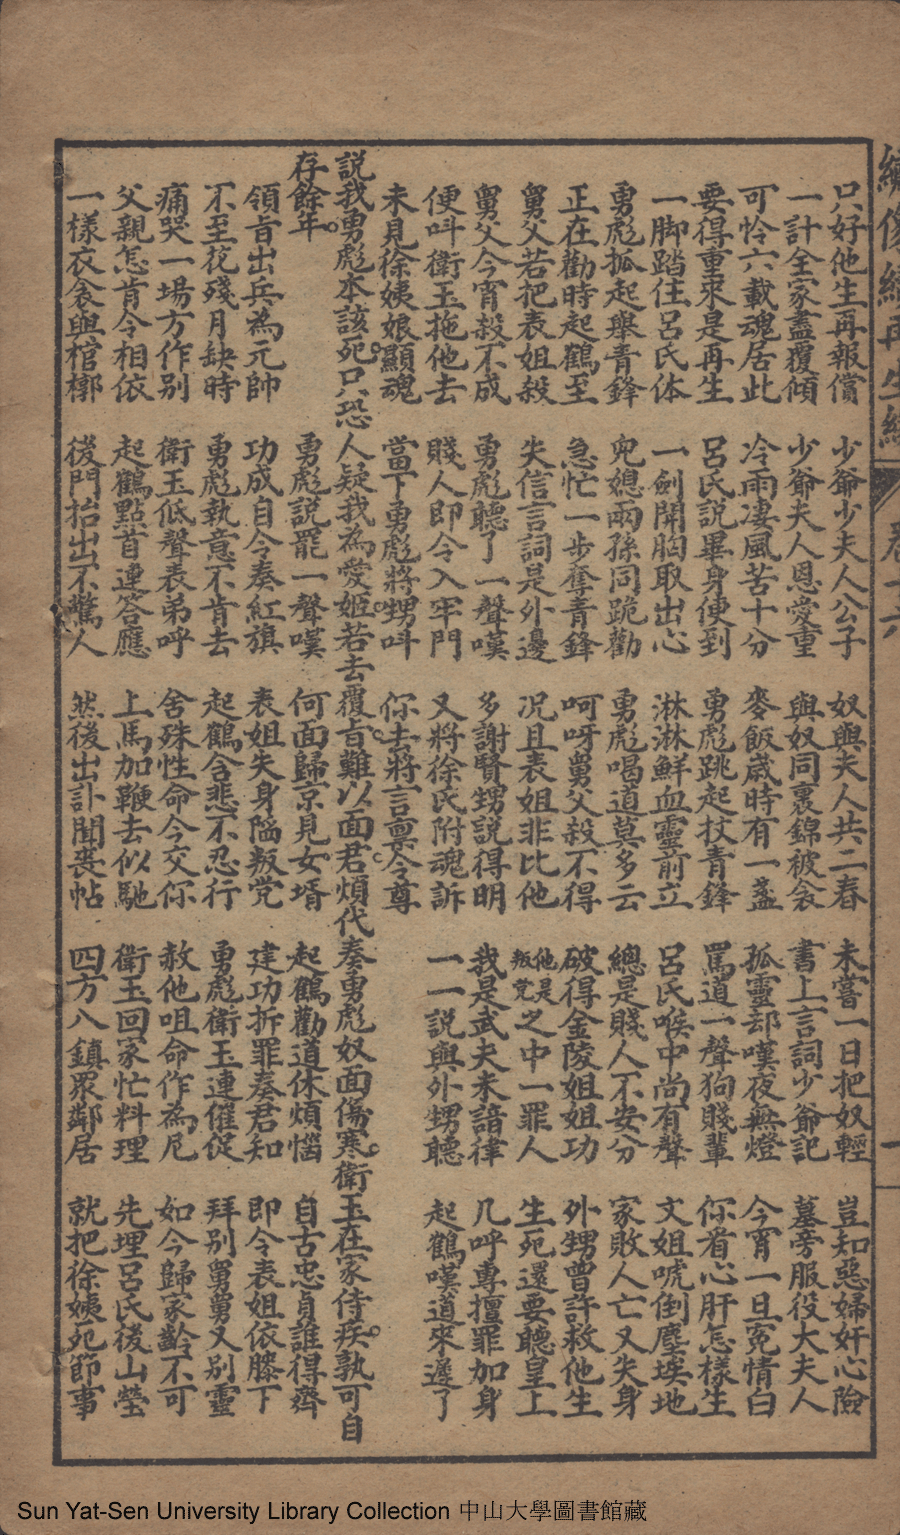 繡像繡再生緣 卷十六 一
只好他生再報償 少爺少夫人公子 奴與夫人共二春 未嘗一日把奴輕 豈知惡婦奸心險
一計全家盡覆傾 少爺夫人恩愛重 與奴同裹錦被衾 書上言詞少爺記 墓旁服役大夫人
可怜六載魂居此 冷雨凄風苦十分 麥飯歲時有一盞 孤靈却嘆夜無燈 今宵一旦冤情白
要得重來是再生 呂氏說畢身便到 勇彪跳起杖青鋒 罵道一聲狗賤輩 你看心肝怎樣生
一脚踏住呂氏体 一劍開胸取出心 淋淋鮮血靈前立 呂氏喉中尚有聲 文姐唬倒塵埃地
勇彪孤起舉青鋒 兒媳兩孫同跪勸 勇彪喝道莫多云 總是賤人不安分 家敗人亡又失身
正在勸時起鶴至 急忙一步奪青鋒 呵呀舅父殺不得 破得金陵姐姐功 外甥曾許救他生
舅父若把表姐殺 失信言詞是外邊 况且表姐非比他 他是叛党之中一罪人 生死還要聽皇上
舅父今宵殺不成 勇彪聽了一聲嘆 多謝賢甥說得明 我是武夫未諳律 几呼專擅罪加身
便呌衛玉拖他去 賤人即令入牢門 又將徐氏附魂訴 一一說與外甥聽 起鶴嘆道來遲了
未見徐姨娘顯魂 當下勇彪將甥呌 你去將言禀令尊
說我勇彪本該死只恐人疑我為愛姬若去覆旨難以面君煩代奏勇彪奴面傷寒衛玉在家侍疾孰可自
存餘年 勇彪說罷一聲嘆 何面歸京見女壻 起鶴勸道休煩惱 自古忠貞誰得齊
領旨出兵為元帥 功成自令奏紅旗 表姐失身陷叛党 建功折罪奏君知 即令表姐依膝下
不至花殘月缺時 勇彪執意不肯去 起鶴含悲不忍行 勇彪衛玉連催促 拜別舅舅又別靈
痛哭一場方作別 衛玉低聲表弟呼 舍殊性命今交你 赦他咀命作為尼 如今歸家齡不可
父親怎肯令相依 起鶴點首連答應 上馬加鞭去似馳 衛玉回家忙料理 先埋呂氏後山塋
一樣衣衾與棺槨 後門抬出不驚人 然後出訃聞喪帖 四方八鎮眾鄰居 就把徐姨死節事
Sun Yat-Sen University Library Collection 中山大學圖書館藏